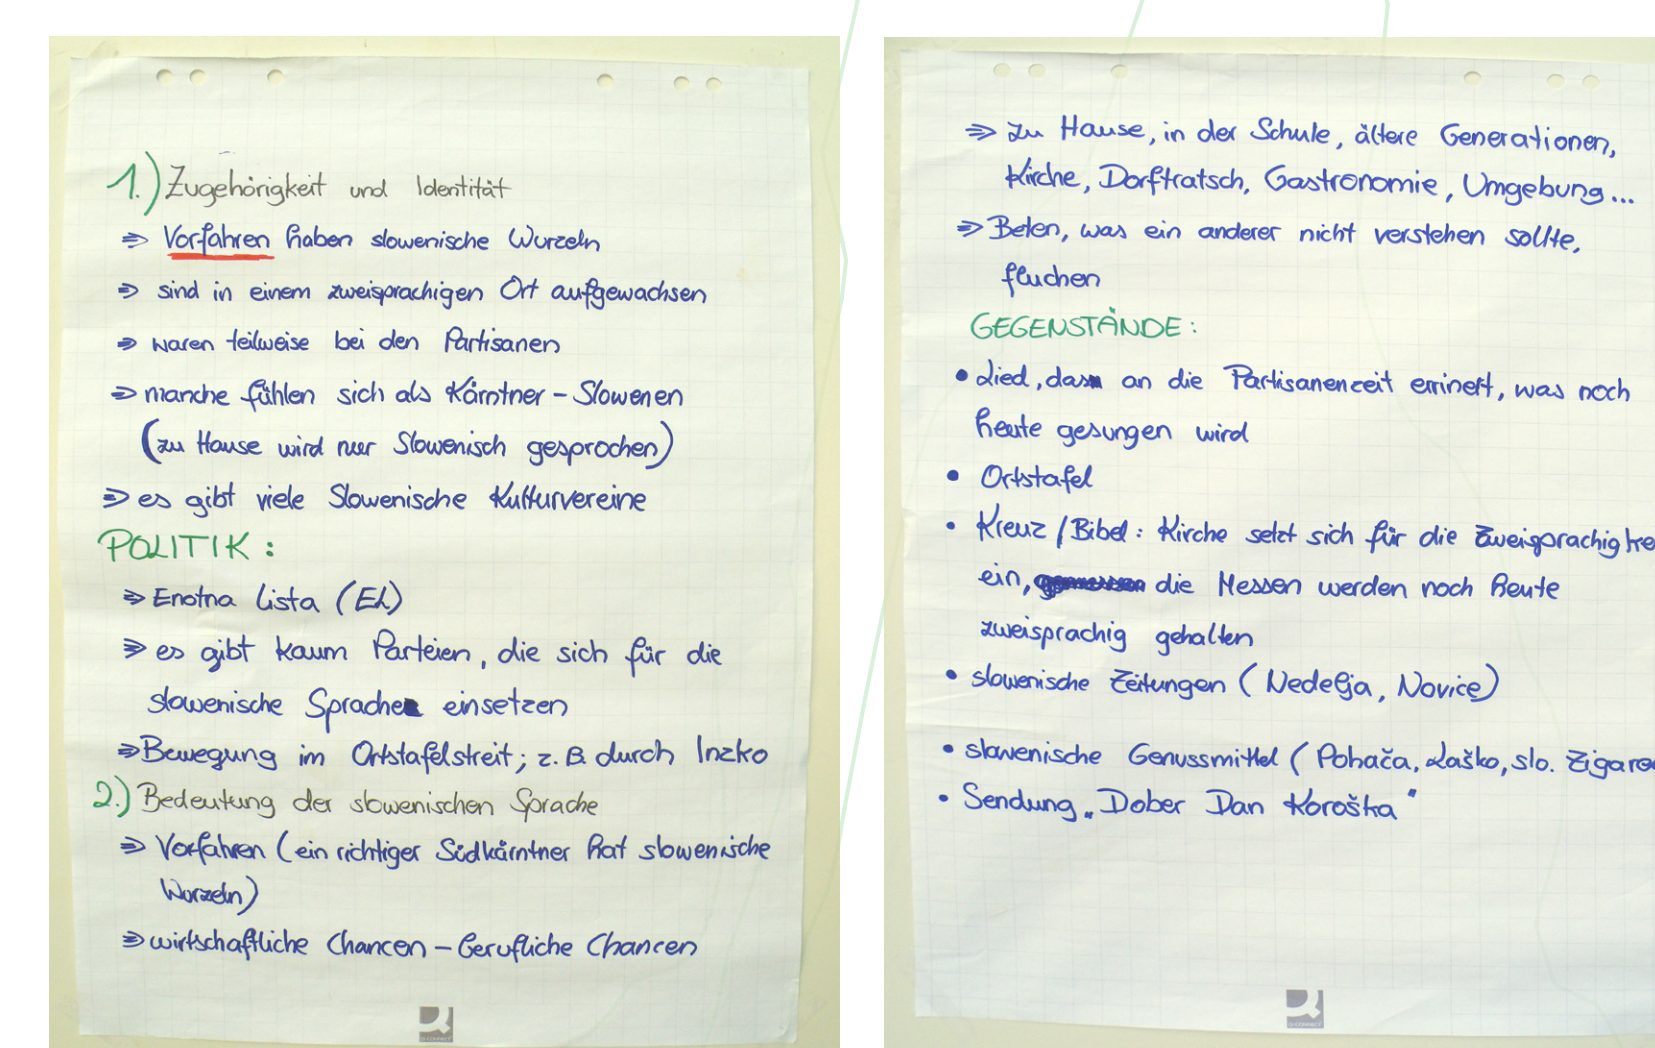 1.) Zugehörigkeit und Identität
⇒ Vorfahren haben slowenische Wurzeln
⇒ sind in einem zweisprachigen Ort aufgewachsen
⇒ waren teilweise bei den Partisanen
⇒ manche fühlen sich als Kärntner - Slowenen
(zu Hause wird nur Slowenisch gesprochen)
⇒ es gibt viele Slowenische Kulturvereine
POLITIK:
⇒ Enotna Lista (EL)
⇒ es gibt kaum Parteien, die sich für die
slowenische Sprache einsetzen
⇒ Bewegung im Ortstafelstreit; z.B. durch Inzko
2.) Bedeutung der slowenischen Sprache
⇒ Vorfahren (ein richtiger Südkärntner hat slowenische
Wurzeln)
⇒ wirtschaftliche Chancen - berufliche Chancen
Q-CONNECT
⇒ zu Hause, in der Schule, ältere Generationen,
Kirche, Dorftratsch, Gastronomie, Umgebung...
⇒ Beten, was ein anderer nicht verstehen sollte,
fluchen
GEGENSTÄNDE:
• Lied, das an die Partisanenzeit errinert, was noch
heute gesungen wird
• Ortstafel
• Kreuz / Bibel: Kirche setzt sich für die
ein, die Messen werden noch heute
zweisprachig gehalten
• slowenische Zeitungen (Nedelja, Novice)
• slowenische Genussmittel (Pohača, Laško, slo.
• Sendung „Dober Dan Koroška"
Q-CONNECT